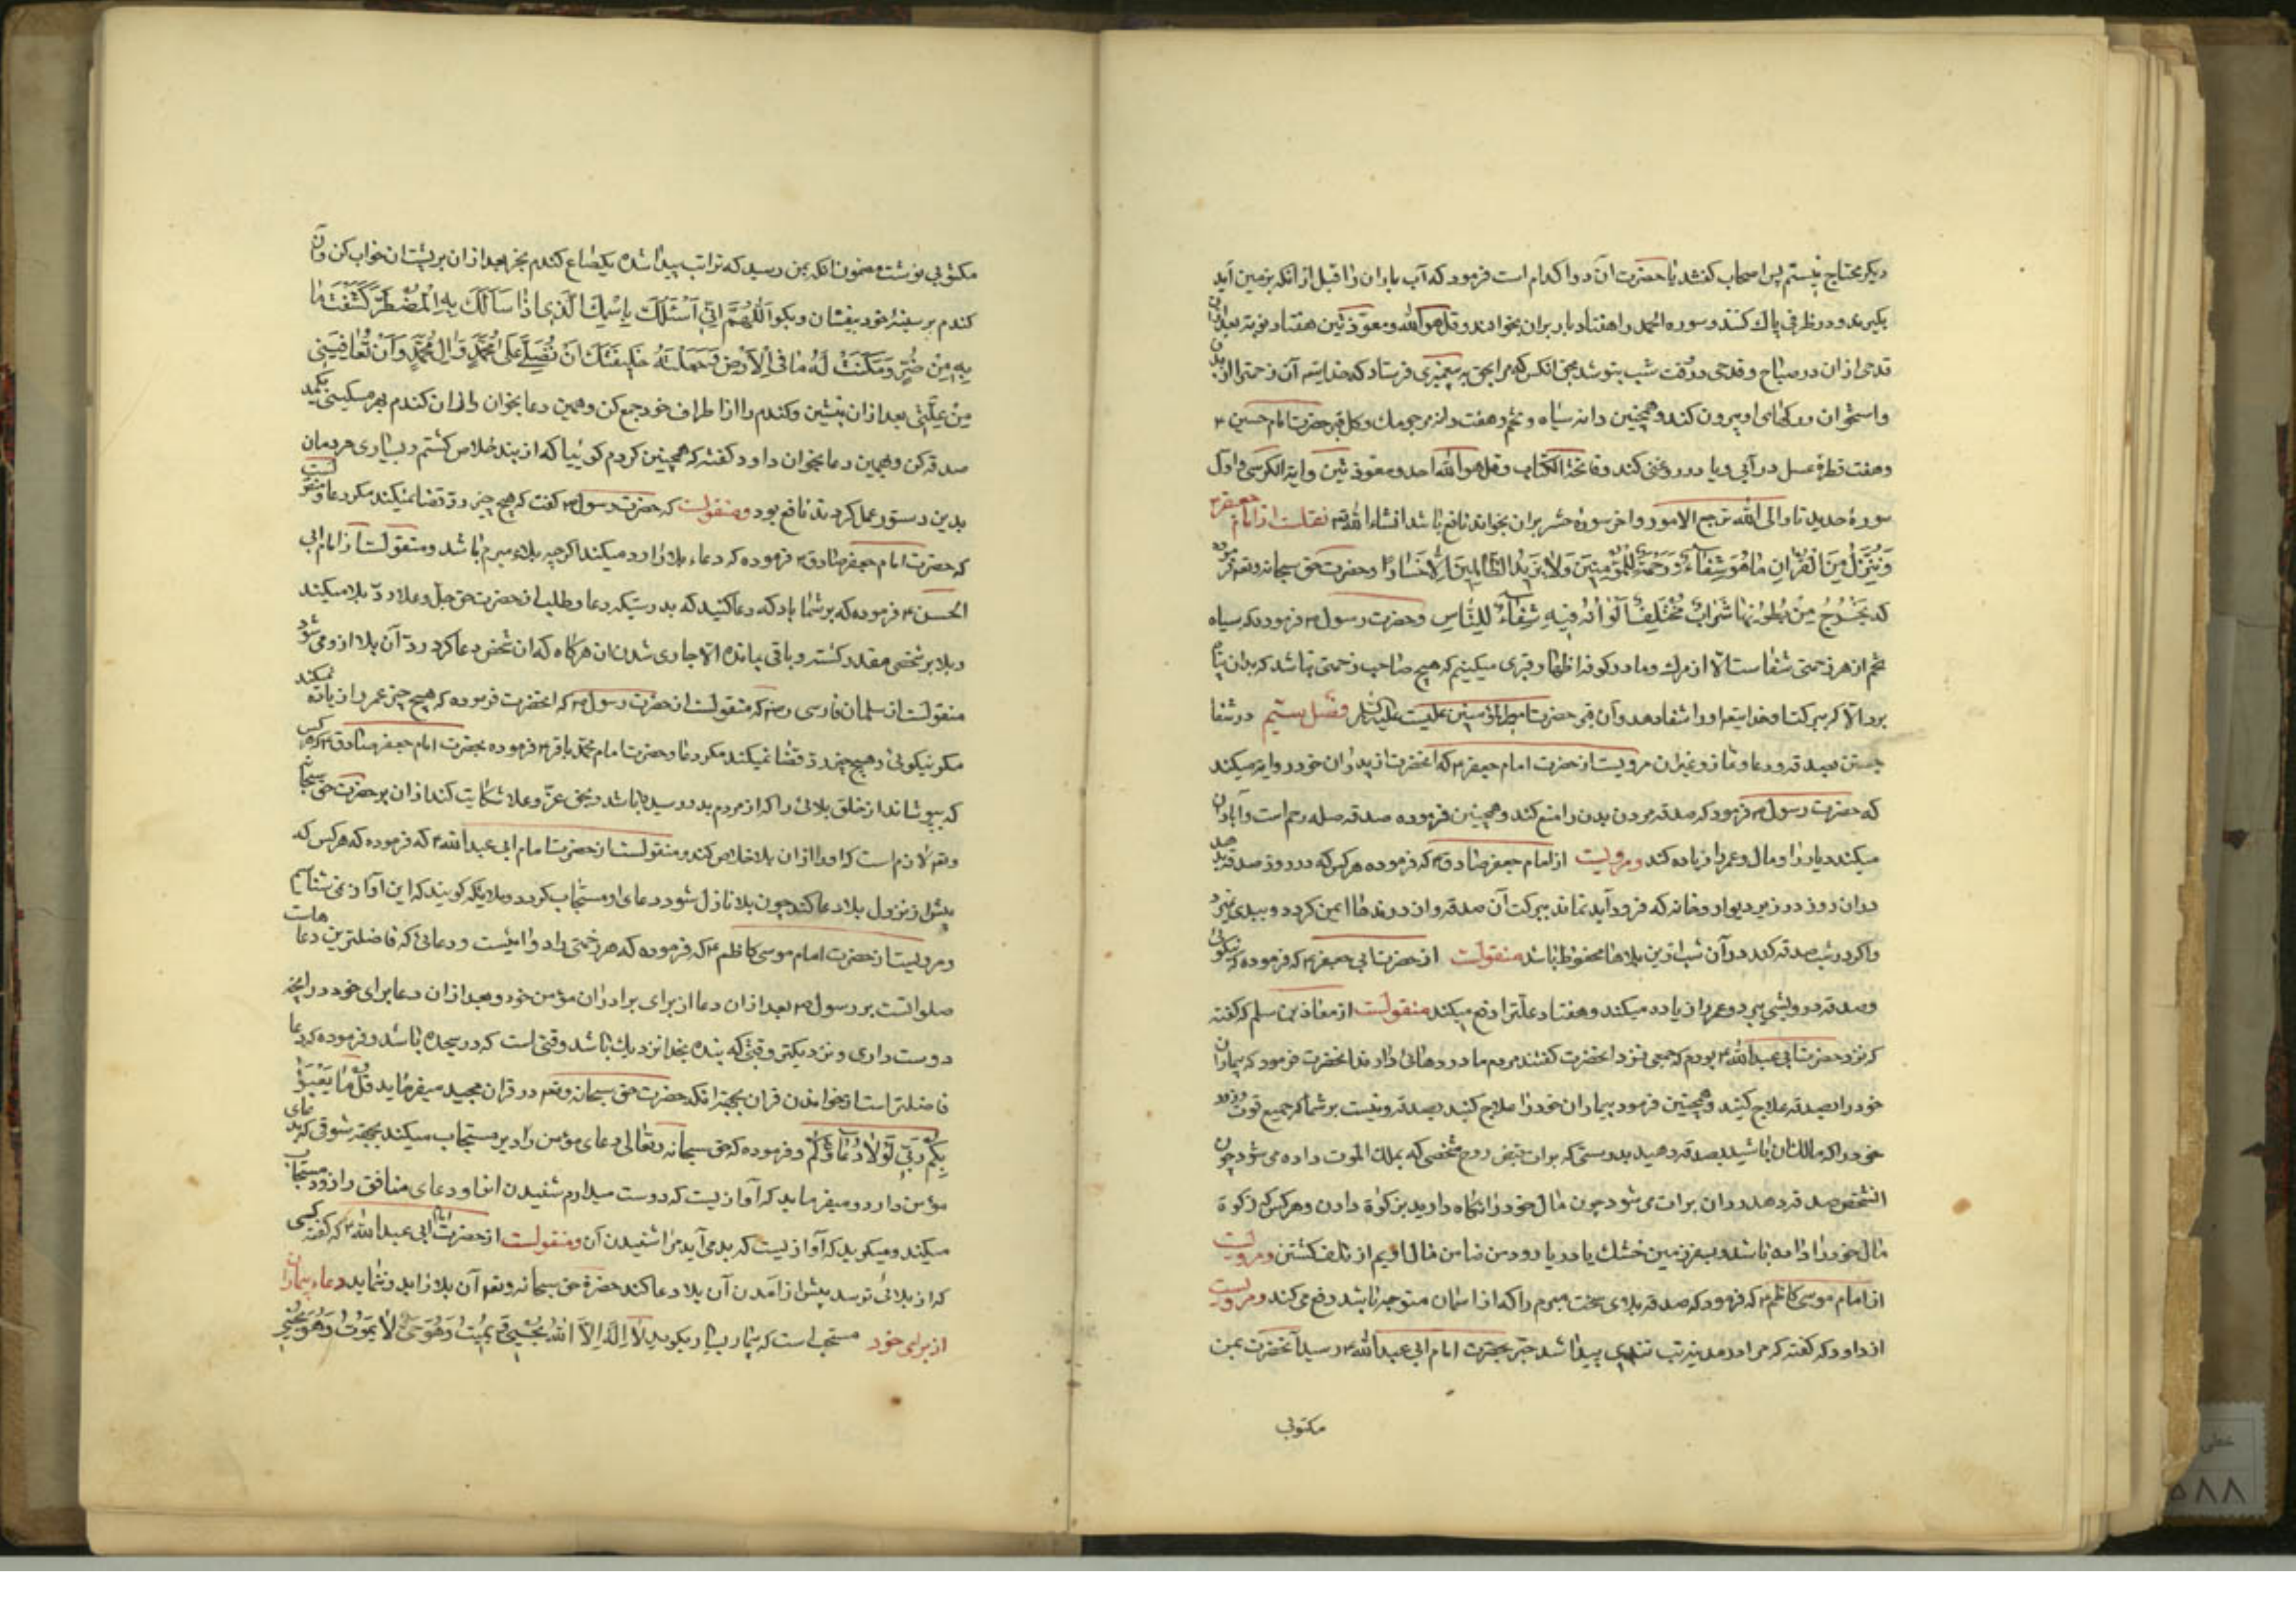 دیکر محتاج نیستم پس اصحاب کفتند یا حضرت آن دوا کدام است فرمود که آب باران را قبل از انکه بزمین آید
بکیرند و در ظرفی پاک کنند و سوره الحمد را هفتاد بار بران بخوانند و قل هو الله و معوذتین هفتاد نوبة بعد ازان
قدحی ازان در صباح و قدحی در وقت شب بنوشد بحق انکس که مرا بحق به پیغمبری فرستاد که خدایتعه آن زحمتی را از بدن
و استخوان و رکهای او بیرون کند و همچنین دانه سیاه و تخم و هفت دانه مرجومک و کل قبر حضرت امام حسین ۴
و هفت قطرهٔ عسل در آبی و یا در روغنی کند و فاتحة الکتاب و قل هو الله احد و معوذتین و آیة الکرسی و اول
سورهٔ حدید تا و الی الله ترجع الامور و اخر سورهٔ حشر بران بخواند نافع باشد انشاء الله تعه نقلست از امام جعفر ۴
وَنُنَزِّلُ مِنَ الْقُرْانِ مَا هُوَ شِفَاءٌ وَرَحْمَةٌ لِلْمُؤْمِنِينَ وَلَا يَزِيدُ الظَّالِمِينَ اِلَّا خَسَارًا و حضرت حق سبحانه و تعه فرموده
که یَخْرُجُ مِنْ بُطُونِهَا شَرَابٌ مُخْتَلِفٌ اَلْوَانُهُ فِیهِ شِفَاءٌ لِلنَّاسِ و حضرت رسول ۳ فرموده که سیاه
تخم از هر زحمتی شفاست الا از مرک و ما در کوفه اظهار قبری میکنیم که هیچ صاحب زحمتی نباشد که بدان پناه
برد الا که ببرکت او خدایتعه او را شفا دهد و آن قبر حضرت امیر المؤمنین علیست علیه السلم فصل بیستم در شفا
جستن بصدقه و دعا و نماز و غیران مرویست از حضرت امام جعفر ۴ که انحضرت از پدران خود روایة میکند
که حضرت رسول ۳ فرمود که صدقه مردن بدن را منع کند و همچنین فرموده صدقه صله رحم است و آبادان
میکند دیار را و مال و عمر را زیاده کند و مرویست از امام جعفر صادق ۴ که فرموده هرکس که در روز صدقه بدهد
دران روز در زیر دیوار و خانه که فرود آید نماند ببرکت آن صدقه و ان درندها ایمن کردد و ببدی نمیرد
و اکر در شب صدقه کند در آن شب ازین بلاها محفوظ باشد منقولست از حضرت ابی جعفر ۴ که فرموده که نیکوئی
و صدقه درویشی ببرد و عمر را زیاده میکند و هفتاد علّت را دفع میکند منقولست از معاذ بن مسلم که کفته
که نزد حضرت ابی عبد الله ۴ بودم که جمعی نزد انحضرت کفتند مردم ما دردهائی دارند انحضرت فرمود که بیماران
خود را بصدقه علاج کنید و همچنین فرمود بیماران خود را علاج کنید بصدقه و نیست بر شما که جمیع قوت روزه
خود را که مالک ان باشید بصدقه دهید بدرستی که برات قبض روح شخصی که بملک الموت داده می شود چون
انشخص صدقه دهد رد ان برات می شود چون مال خود را نکاه دارید بزکوة دادن و هرکس که زکوة
مال خود را داده باشد و بسفر زمین خشک یا در یا رود من ضامن مال اویم از تلف کشتن و مرویست
از امام موسی کاظم ۴ که فرمود که صدقه بلای سخت مبرم را که از اسمان متوجه باشد دفع می کند و مرویست
از داود که کفته که مرا در مدینه تب تندی پیدا شد خبر بحضرت امام ابی عبد الله ۴ رسید آنحضرت بمن
مکتوبی
مکتوبی نوشت مضمون انکه بمن رسید که ترا تب پیدا شده یکصاع کندم بخر بعد ازان بر پشتان خواب کن و آن
کندم بر سینهٔ خود بیفشان و بکو اَللّٰهُمَّ اِنّی اَسْئَلُكَ بِاسْمِكَ الَّذِی اِذَا سَأَلَكَ بِهِ الْمُضْطَرُّ كَشَفْتَ مَا
بِهِ مِنْ ضُرٍّ وَمَكَّنْتَ لَهُ مَا فِی الْاَرْضِ وَجَعَلْتَهُ خَلِیفَتَكَ اَنْ تُصَلِّیَ عَلَی مُحَمَّدٍ وَ اٰلِ مُحَمَّدٍ وَ اَنْ تُعَافِیَنِی
مِنْ عِلَّتِی بعد ازان بنشین و کندم را از اطراف خود جمع کن و همین دعا بخوان و ازان کندم بهر مسکینی یکمد
صدقه کن و همین دعا بخوان داود کفته که همچنین کردم کوئیا که از بند خلاص کشتم و بسیاری مردمان
بدین دستور عمل کردند نافع بود و منقولست که حضرت رسول ۳ کفت که هیچ چیز ردّ قضا نمیکند مکر دعا و منقولست
که حضرت امام جعفر صادق ۴ فرموده که دعاء بلا را رد میکند اکرچه بلاء مبرم باشد و منقولست از امام ابی
الحسن ۴ فرموده که بر شما باد که دعا کنید که بدرستیکه دعا و طلب از حضرت حق جل و علا ردّ بلا میکند
و بلا بر شخصی مقدر کشته و باقی نمانده الا جاری شدن ان هرکاه که ان شخص دعا کرد ردّ آن بلا از و می شود
منقولست از سلمان فارسی رضه که منقولست از حضرت رسول ۳ که انحضرت فرموده که هیچ چیز عمر را زیاده نمیکند
مکر نیکوئی و هیچ چیز ردّ قضا نمیکند مکر دعا و حضرت امام محمد باقر ۴ فرموده بحضرت امام جعفر صادق ۴ که هر کس
که بپوشاند از خلق بلائی را که از مردم بدو رسیده باشد و بحق عزّ و علا شکایت کند ازان بر حضرت حق سبحانه
و تعه لازم است که او را ازان بلا خلاص کند و منقولست از حضرت امام ابی عبد الله ۴ که فرموده که هر کس که
پیش از نزول بلا دعا کند چون بلا نازل شود دعای او مستجاب کردد و ملایکه کویند که این آواز می شناسیم
و مرویست از حضرت امام موسی کاظم ۴ که فرموده که هر زحمتی را دوائیست و دعائی که فاضلترین دعاهاست
صلواتست بر رسول ۳ بعد ازان دعا از برای برادران مؤمن خود و بعد ازان دعا برای خود در انچه
دوست داری و نزدیکتر وقتی که بنده بخدا نزدیک باشد وقتی است که در سجده باشد و فرموده که دعا
فاضلتر است از خواندن قران بجهة انکه حضرت حق سبحانه و تعه در قران مجید میفرماید قُلْ مَا یَعْبَؤُ
بِكُمْ رَبِّی لَوْلَا دُعَاؤُكُمْ و فرموده که حق سبحانه و تعالی دعای مؤمن را دیر مستجاب میکند بجهة شوقی که بدعای
مؤمن دارد و میفرماید که آوازیست که دوست میدارم شنیدن انرا و دعای منافق را زود مستجاب
میکند و میکوید که آوازیست که بد می آید مرا شنیدن آن و منقولست از حضرت امام ابی عبد الله ۴ که کفته کسی
که از بلائی ترسد پیش از آمدن آن بلا دعا کند حضرة حق سبحانه و تعه آن بلا را بدو ننماید دعاء بیماران
از برای خود مستحب است که بیمار بسیار بکوید لَا اِلٰهَ اِلَّا اللّٰهُ یُحْیِی وَ یُمِیتُ وَهُوَ حَیٌّ لَا یَمُوتُ وَهُوَ
خطی
۵۸۸